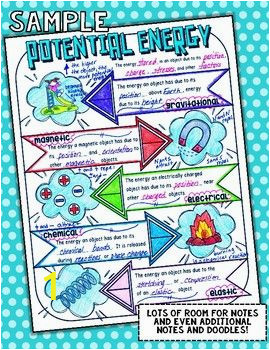 SAMPLE
POTENTIAL ENERGY
the higher
the object, the
The energy stored in an object due to its position,
charge, stresses and other factors
The energy an object has due to
its position above Earth, energy
due to its height
gravitational
magnetic
The energy a magnetic object has due to
its position and orientation to
other magnetic objects.
The energy an electrically charged
object has due to its position near
other charged objects
electrical
chemical
The energy an object has due to its
chemical bonds. It is released
during reactions or phase changes
The energy an object has due to the
stretching or compression
of an elastic object
elastic
LOTS OF ROOM FOR NOTES
AND EVEN ADDITIONAL
NOTES AND DOODLES!